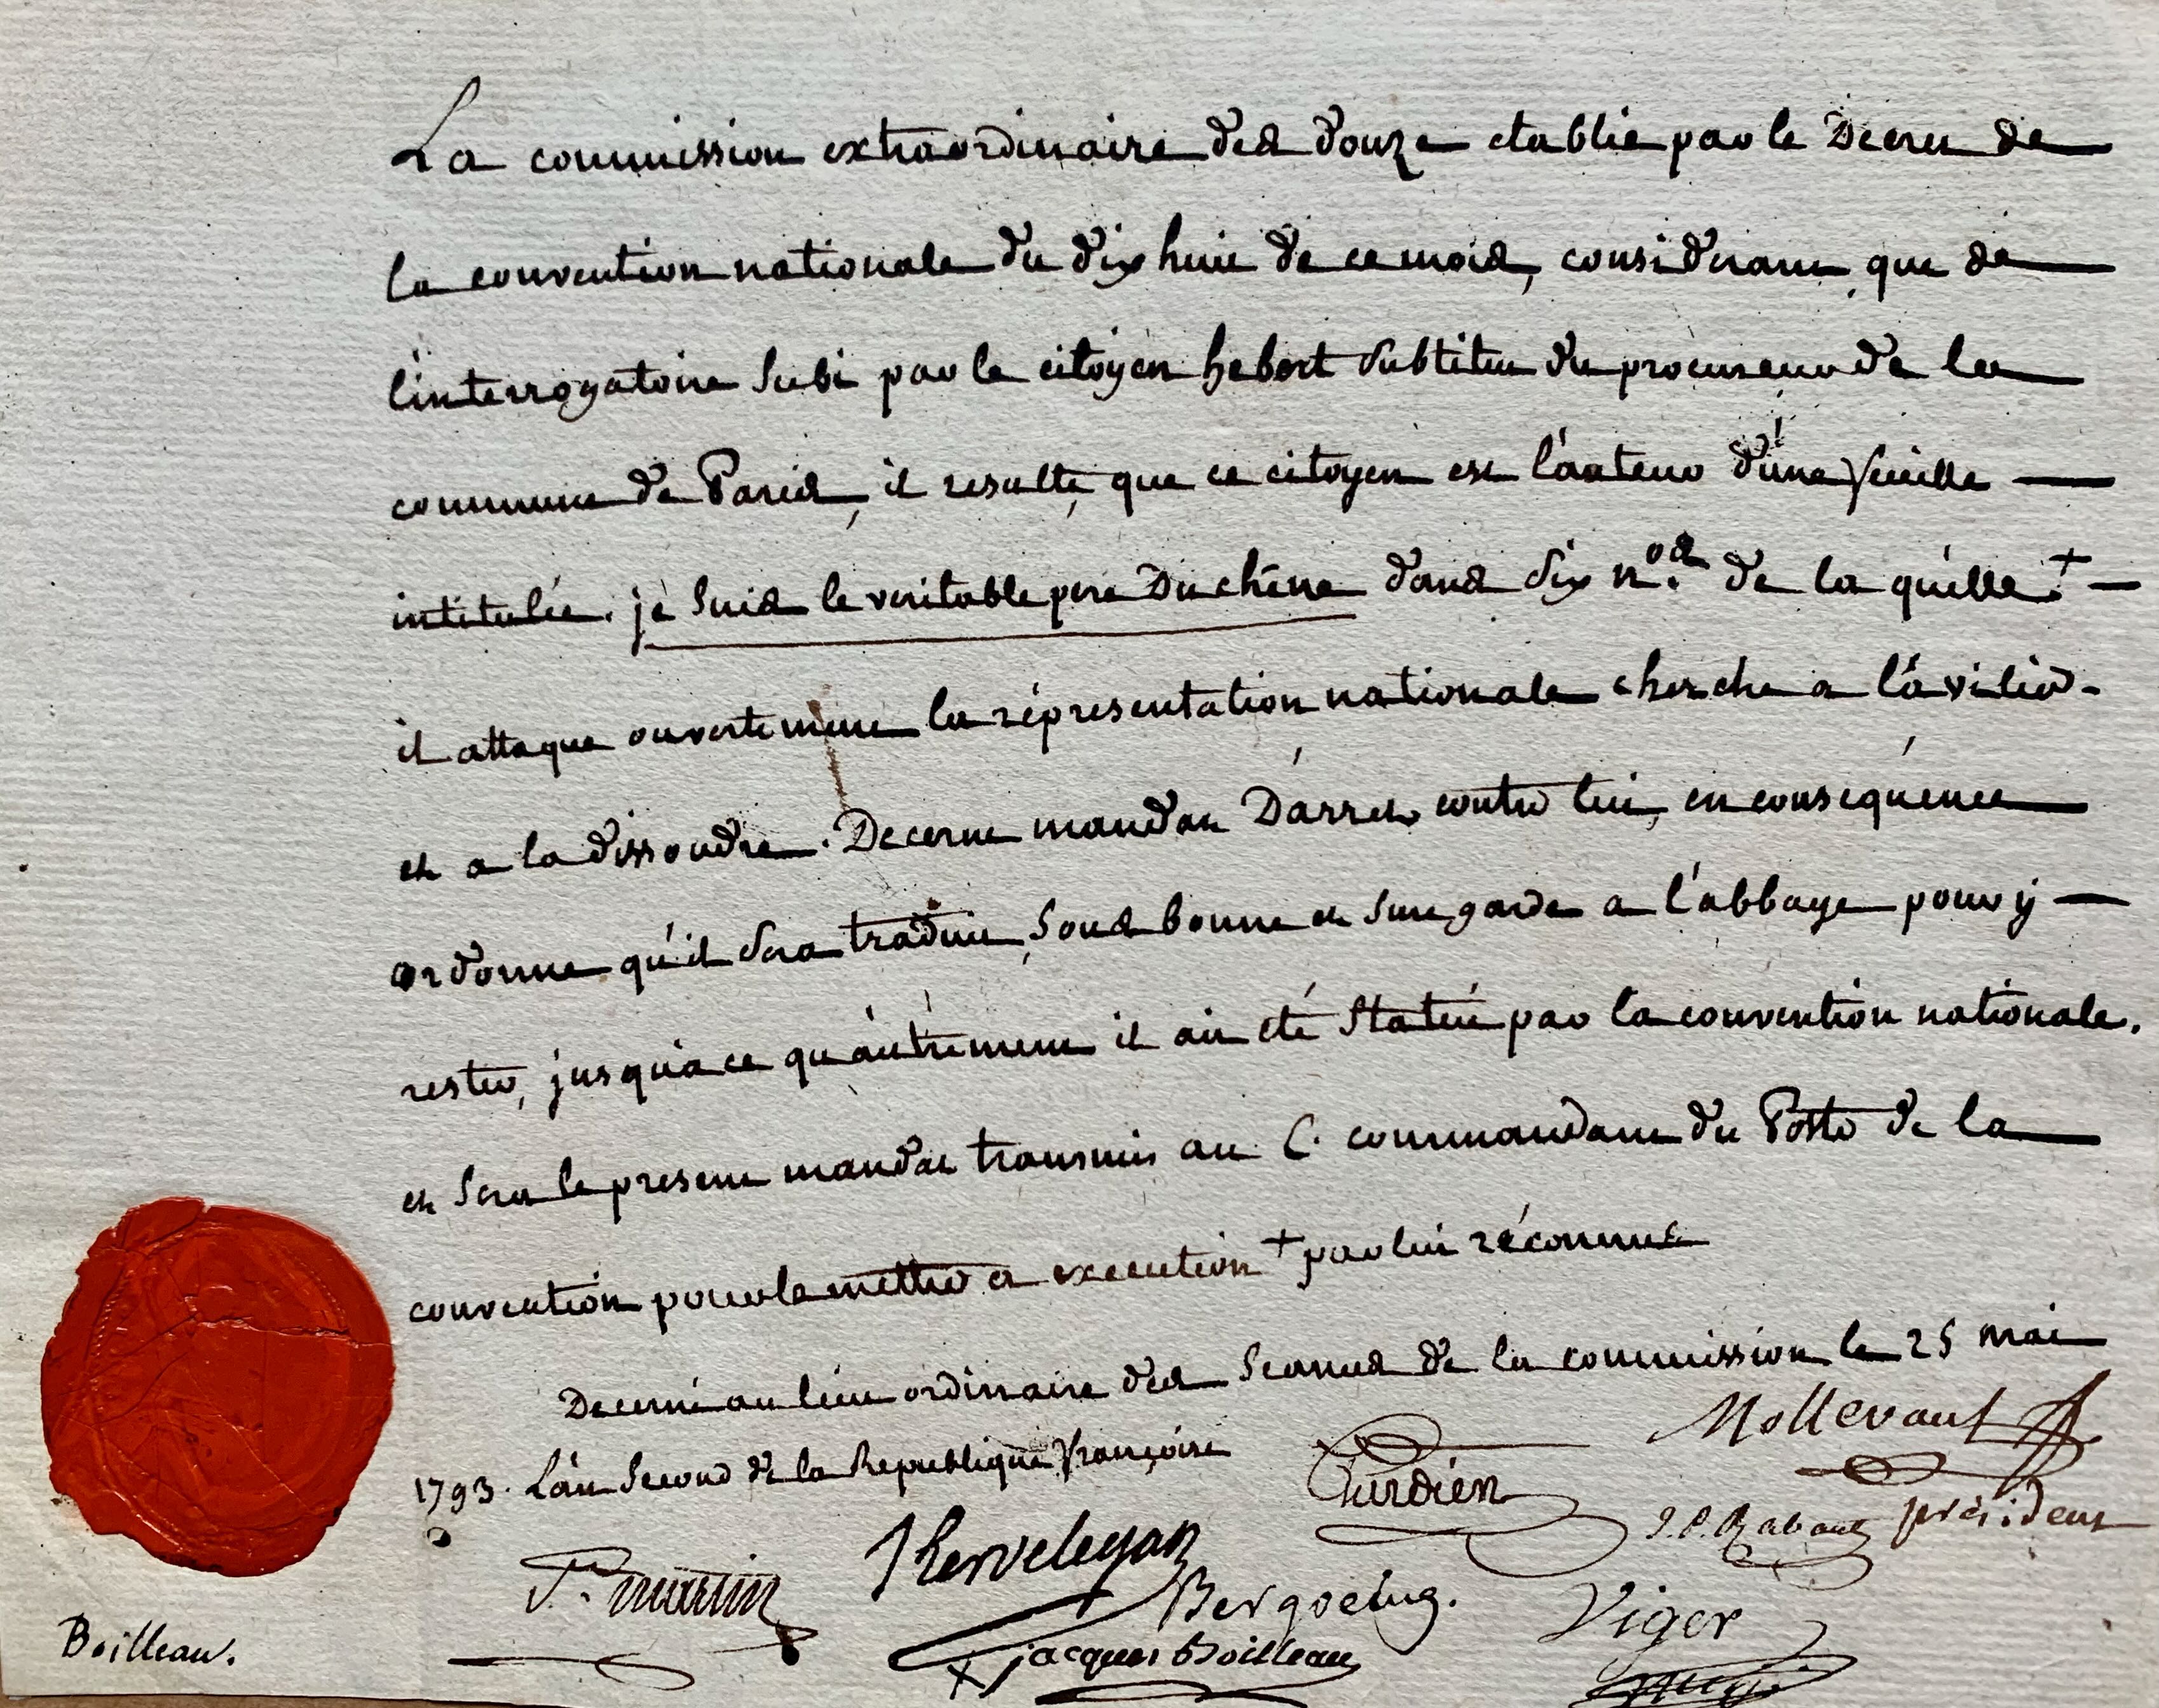 La commission extraordinaire des douze etablie par le Decret de
la convention nationale du dix huit de ce mois, considerant, que de
l'interrogatoire subi par le citoyen hebert subtitut du procureur de la
commune de Paris, il resulte, que ce citoyen est l'auteur d'une feuille
intitulée. je suis le veritable pere Duchêne dans six n.os de la quelle +
il attaque ouvertement la réprésentation nationale cherche a l'avilir
et a la dissoudre. Decerne mandat D'arret, contre lui, en conséquence
ordonne qu'il sera traduit, sous bonne et sure garde a l'abbaye pour ÿ
rester, jusqu'a ce qu'autrement il ait été statué par la convention nationale.
et sera le present mandat transmis au C. commandant du Poste de la
convention pour le mettre a execution + par lui réconnue
Decerné au lieu ordinaire des Seances de la commission le 25 mai
1793. L'an Second de la Republique françoise
Mollevaut
président
Gardien
J. P. Rabaut
Kervelegan
St. martin
Bergoeing.
Viger
jacques Boilleau
Boilleau.